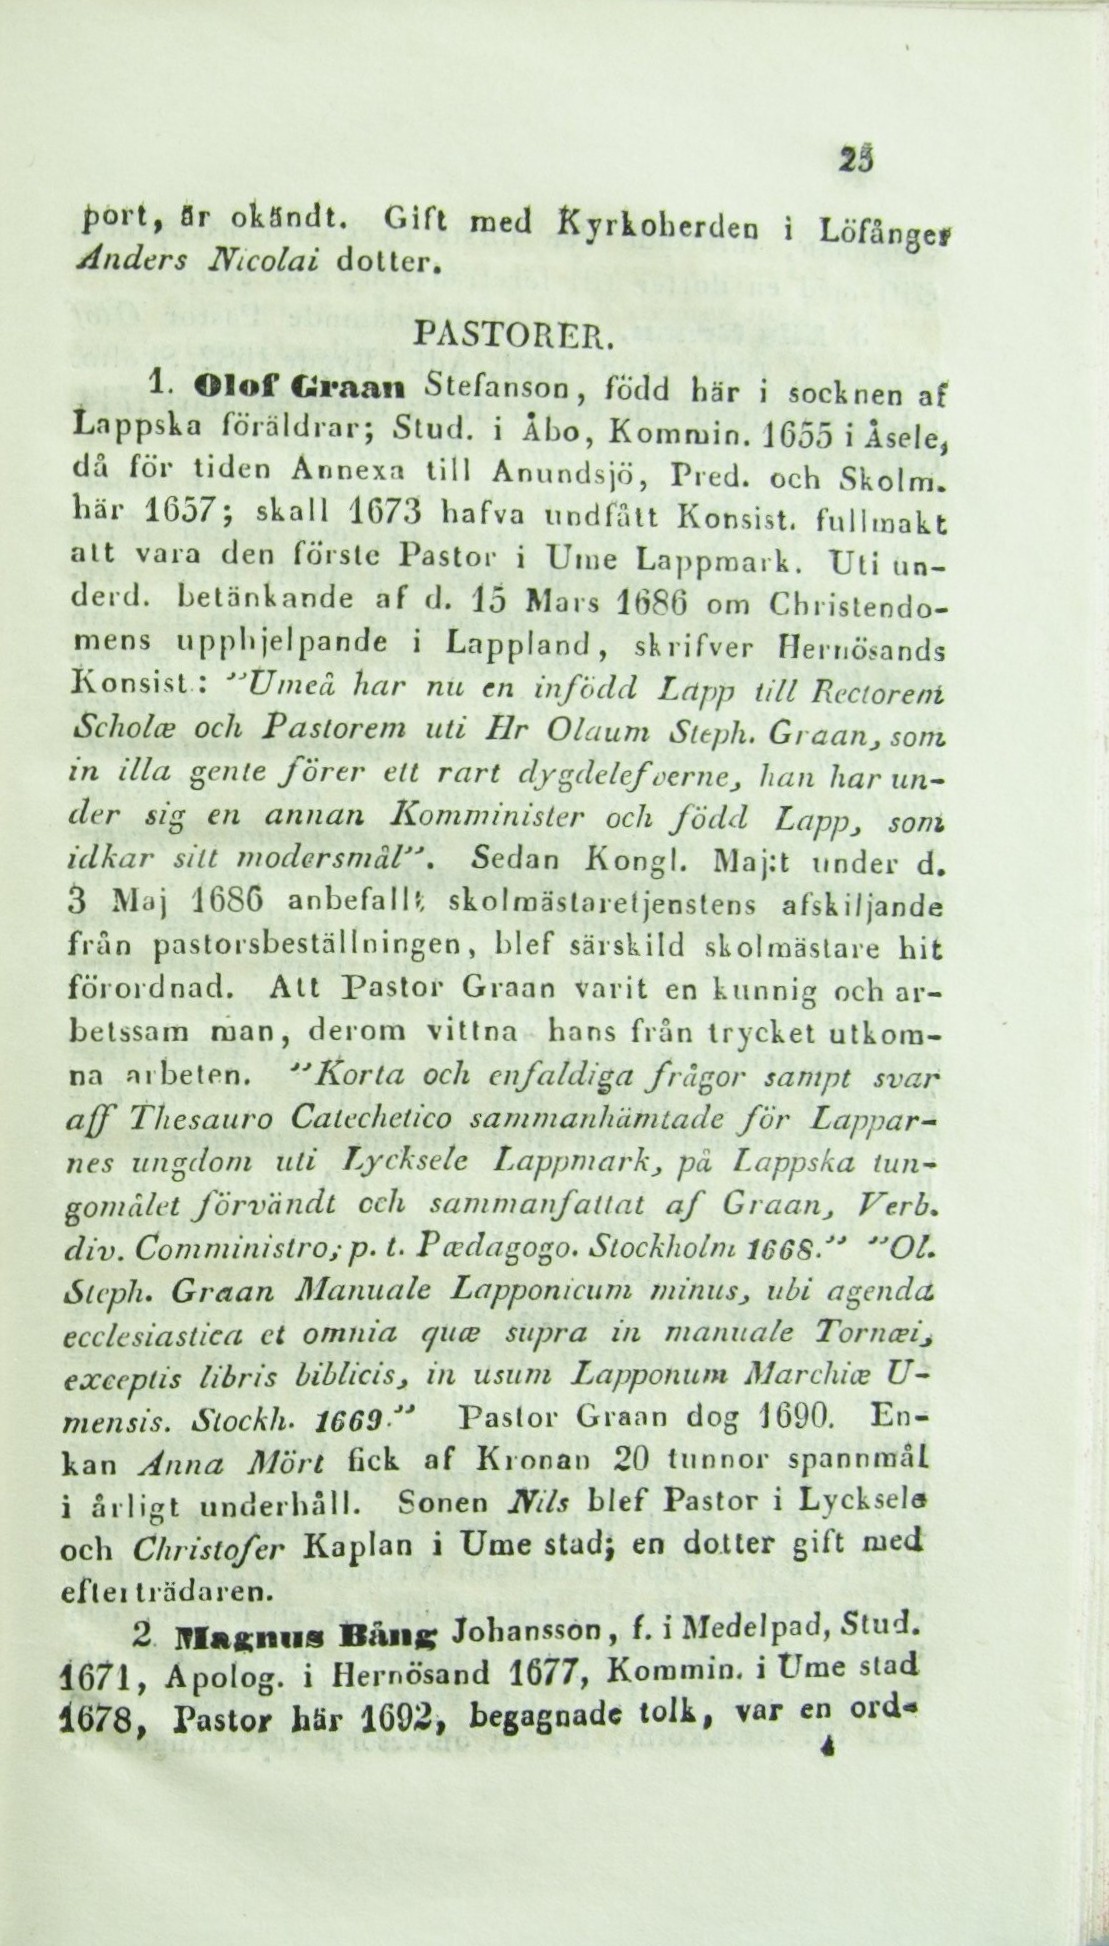 25
port, är okändt. Gift med Kyrkoherden i Löfånger
Anders Nicolai dotter.
PASTORER.
1. Olof Graan Stefanson, född här i socknen af
Lappska föräldrar; Stud. i Åbo, Kommin. 1655 i Åsele,
då för tiden Annexa till Anundsjö, Pred. och Skolm.
här 1657; skall 1673 hafva undfått Konsist. fullmakt
att vara den förste Pastor i Ume Lappmark. Uti un-
derd. betänkande af d. 15 Mars 1686 om Christendo-
mens upphjelpande i Lappland, skrifver Hernösands
Konsist.: "Umeå har nu en infödd Lapp till Rectorem
Scholæ och Pastorem uti Hr Olaum Steph. Graan, som
in illa gente förer ett rart dygdelefverne, han har un-
der sig en annan Komminister och född Lapp, som
idkar sitt modersmål". Sedan Kongl. Maj:t under d.
3 Maj 1686 anbefallt skolmästaretjenstens afskiljande
från pastorsbeställningen, blef särskild skolmästare hit
förordnad. Att Pastor Graan varit en kunnig och ar-
betssam man, derom vittna hans från trycket utkom-
na arbeten. "Korta och enfaldiga frågor sampt svar
aff Thesauro Catechetico sammanhämtade för Lappar-
nes ungdom uti Lycksele Lappmark, på Lappska tun-
gomålet förvändt och sammanfattat af Graan, Verb.
div. Comministro; p. t. Pædagogo. Stockholm 1668." "Ol.
Steph. Graan Manuale Lapponicum minus, ubi agenda
ecclesiastica et omnia quæ supra in manuale Tornæi,
exceptis libris biblicis, in usum Lapponum Marchiæ U-
mensis. Stockh. 1669." Pastor Graan dog 1690. En-
kan Anna Mört fick af Kronan 20 tunnor spannmål
i årligt underhåll. Sonen Nils blef Pastor i Lycksele
och Christofer Kaplan i Ume stad; en dotter gift med
efterträdaren.
2. Magnus Bång Johansson, f. i Medelpad, Stud.
1671, Apolog. i Hernösand 1677, Kommin. i Ume stad
1678, Pastor här 1692, begagnade tolk, var en ord-
4